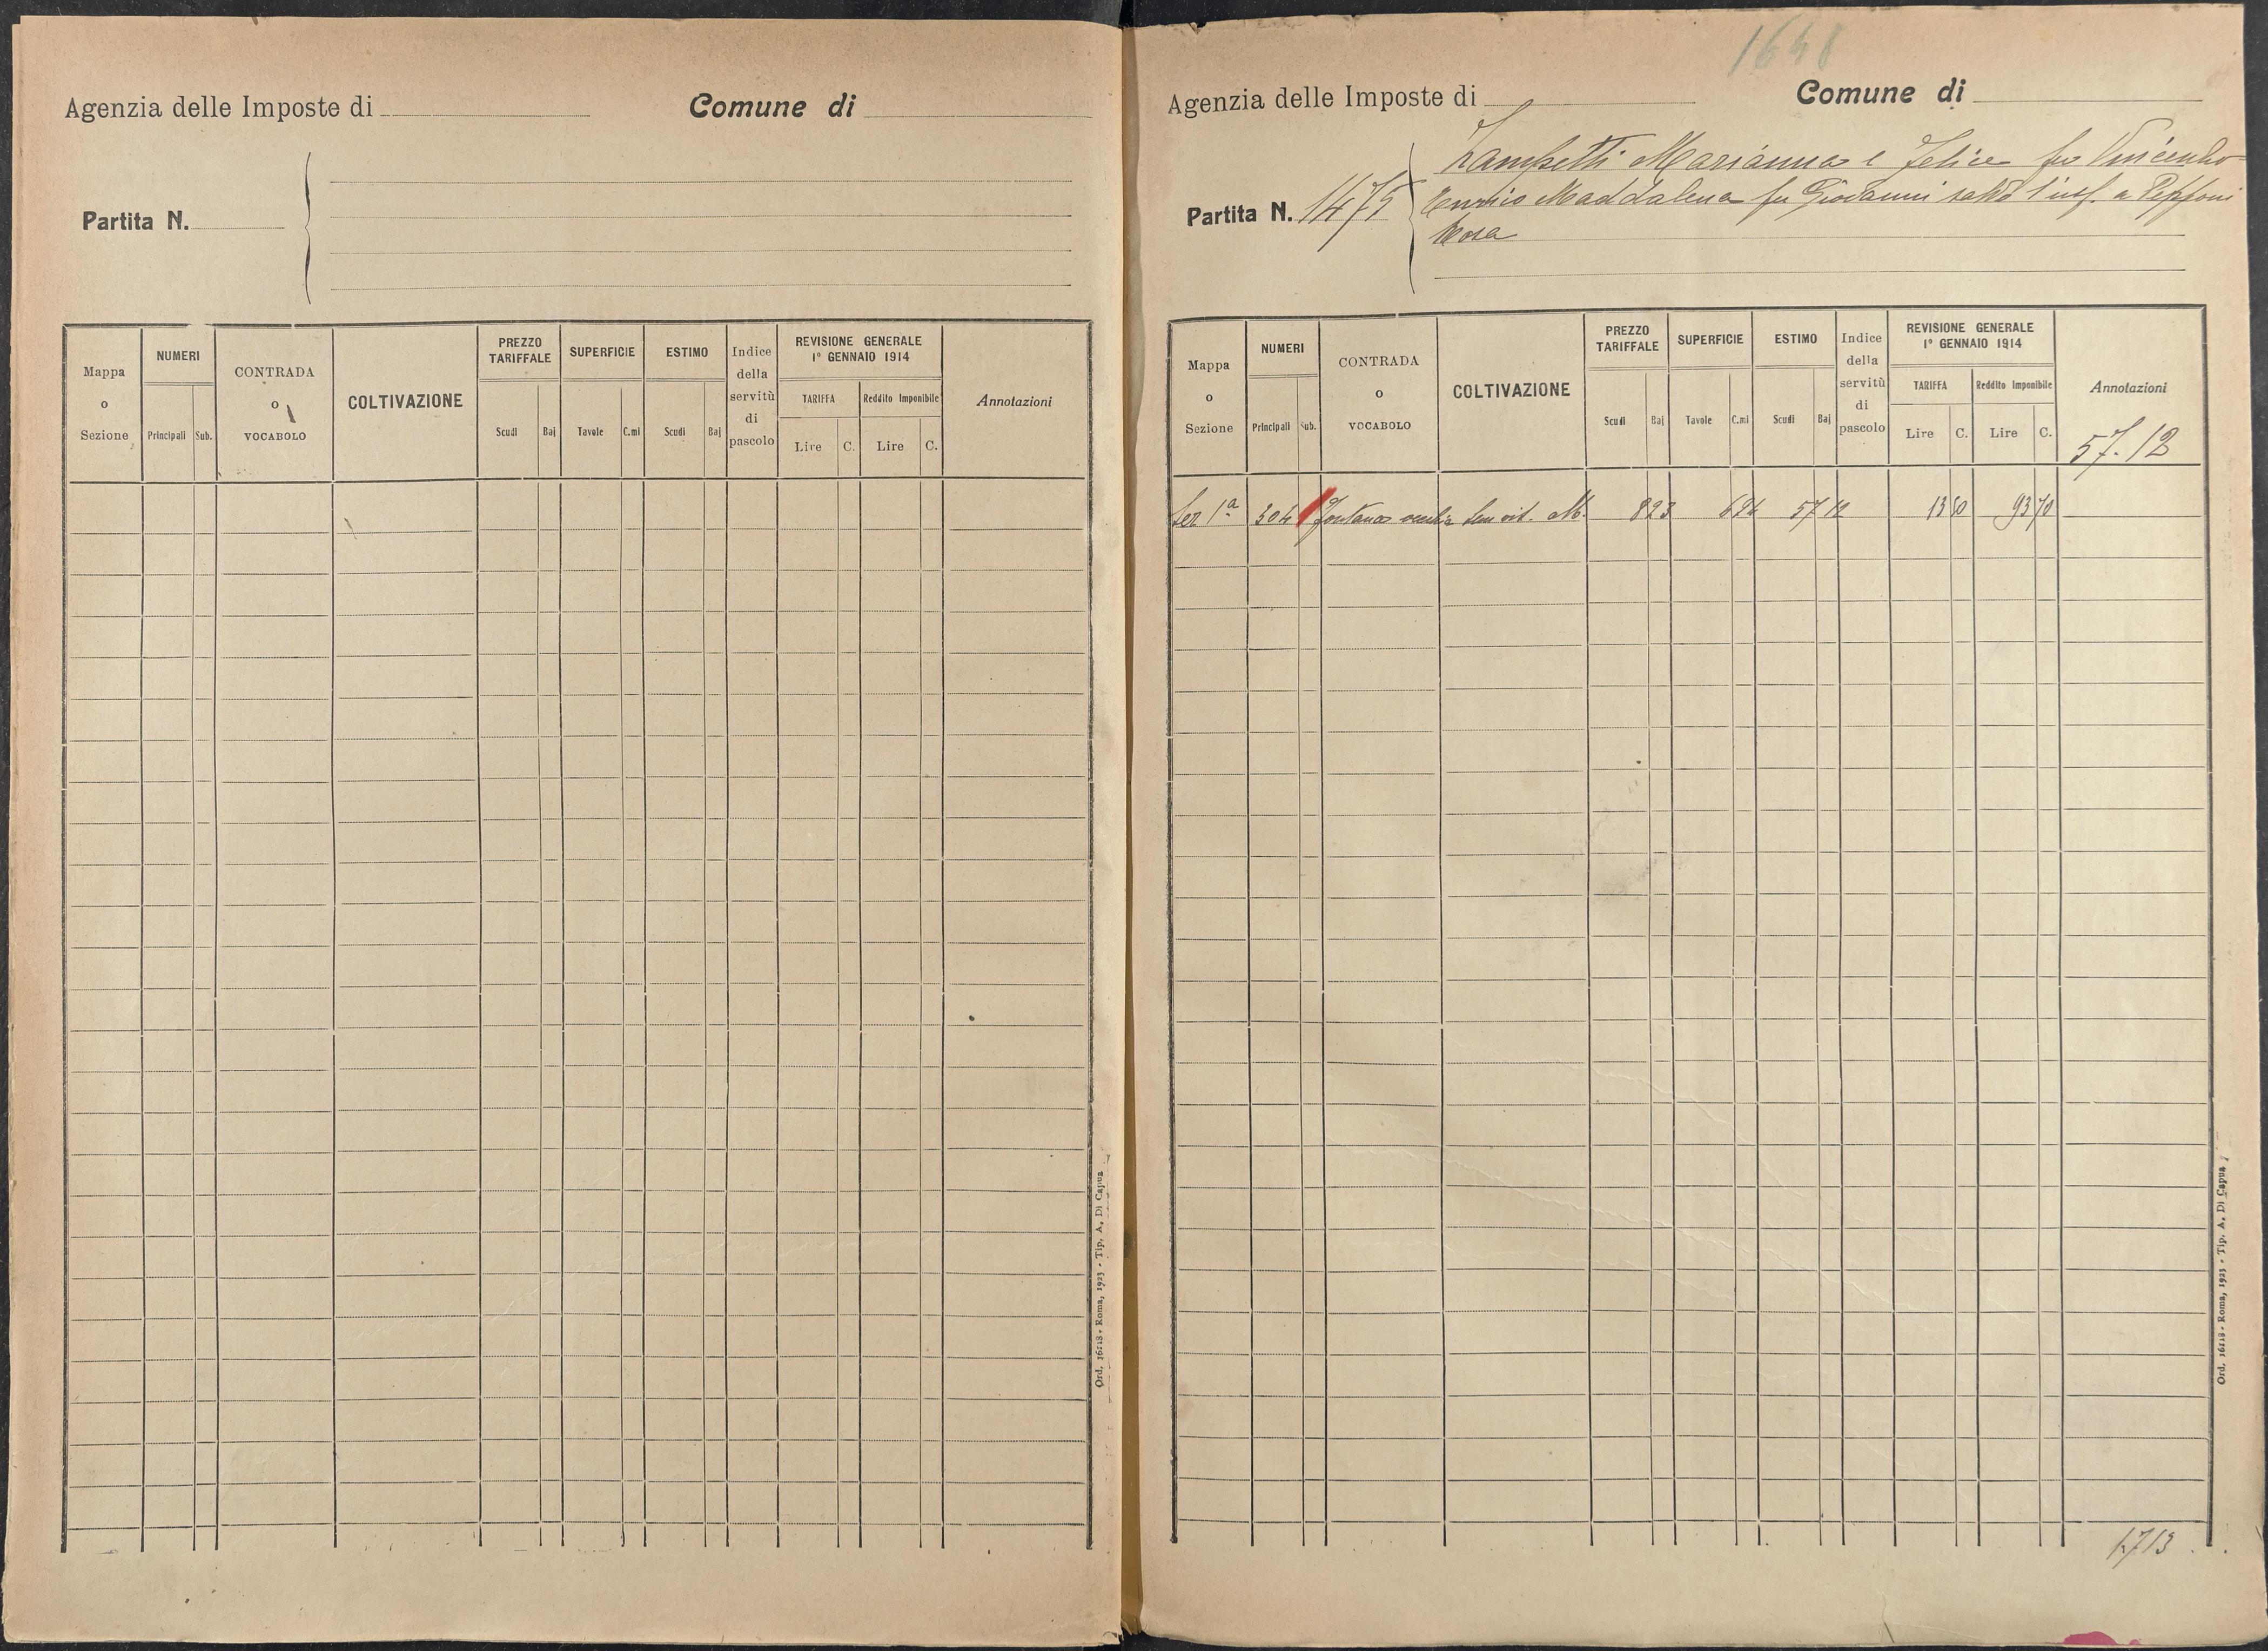 Agenzia delle Imposte di
Comune di
Partita N.
Mappa o Sezione
NUMERI
Principali Sub.
CONTRADA o VOCABOLO
COLTIVAZIONE
PREZZO TARIFFALE
Scudi Baj
SUPERFICIE
Tavole C.mi
ESTIMO
Scudi Baj
Indice della servitù di pascolo
REVISIONE GENERALE
1° GENNAIO 1914
TARIFFA Reddito Imponibile
Lire C. Lire C.
Annotazioni
Ord. 16118 - Roma, 1923 - Tip. A. Di Capua
1648
Agenzia delle Imposte di
Comune di
Partita N. 1475
Zampetti Marianna e Felice fu Vincenzo
Enrico Maddalena fu Giovanni salvo l'usf. a Pepponi
Rosa
Mappa o Sezione
NUMERI
Principali Sub.
CONTRADA o VOCABOLO
COLTIVAZIONE
PREZZO TARIFFALE
Scudi Baj
SUPERFICIE
Tavole C.mi
ESTIMO
Scudi Baj
Indice della servitù di pascolo
REVISIONE GENERALE
1° GENNAIO 1914
TARIFFA Reddito Imponibile
Lire C. Lire C.
Annotazioni
57.12
Sez 1ª 304 Fontana Sem vit. 823 694 57 12 13 50 93 70
1713
Ord. 16118 - Roma, 1923 - Tip. A. Di Capua